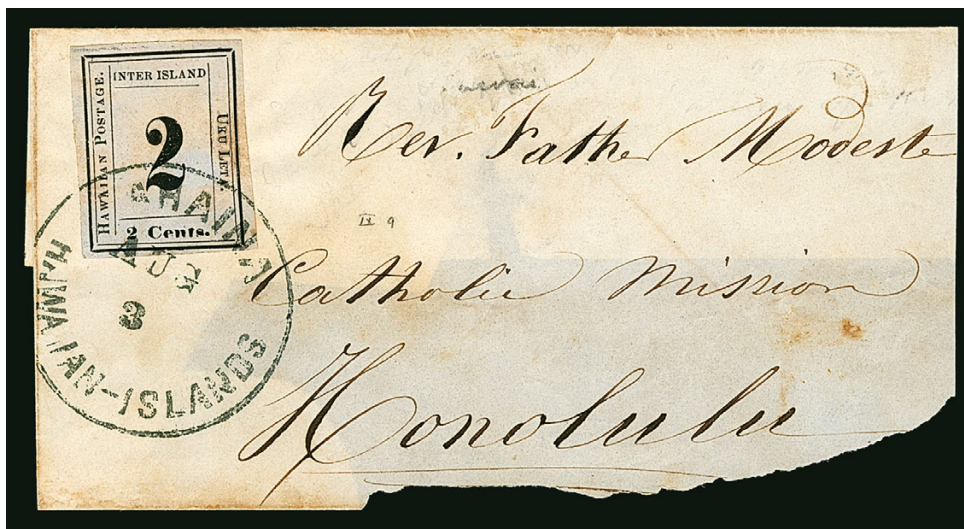 INTER ISLAND
HAWAIIAN POSTAGE.
UKU LETA.
2
2 Cents.
LAHAINA
AUG
3
HAWAIIAN-ISLANDS
Rev. Father Modeste
IX 9
Catholic Mission
Honolulu